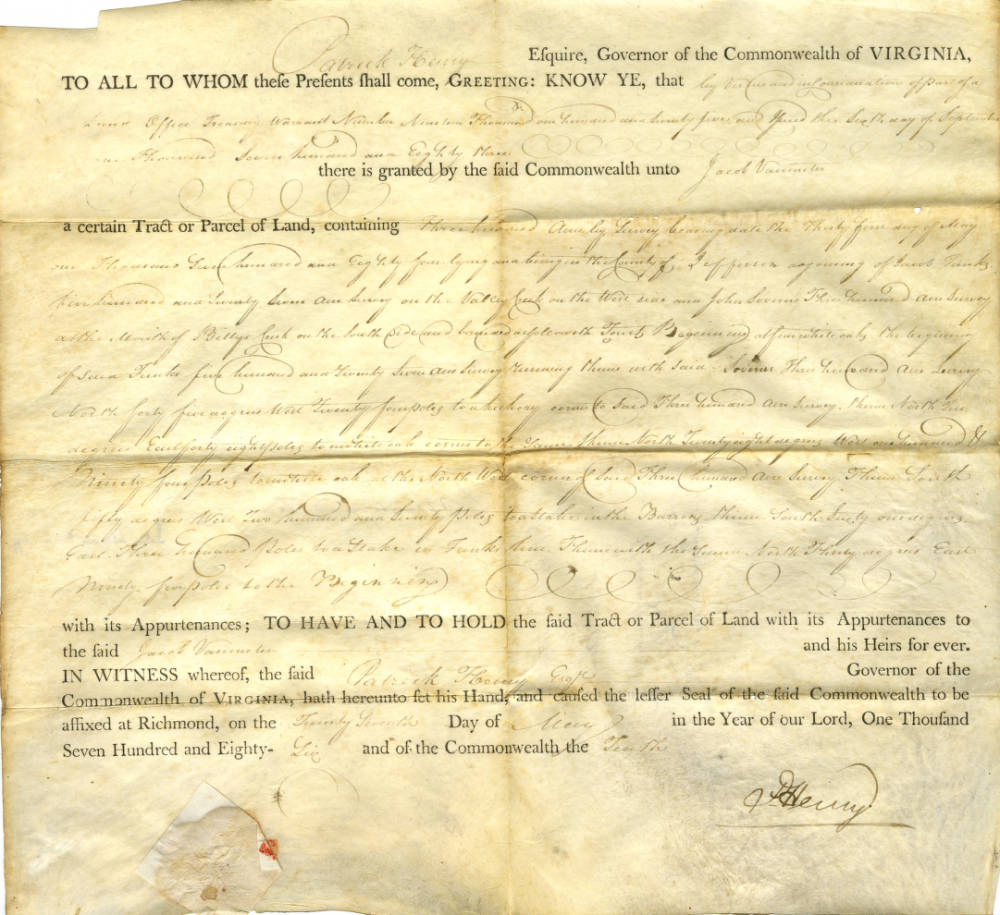 Patrick Henry Esquire, Governor of the Commonwealth of VIRGINIA,
TO ALL TO WHOM theſe Preſents ſhall come, GREETING: KNOW YE, that by Virtue and in Consideration of part of a
Land Office Treasury Warrant Number Nineteen Thousand one hundred and and Issued the Sixth day of September
one Thousand Seven hundred and Eighty three
there is granted by the ſaid Commonwealth unto Jacob Vanmeter
a certain Tract or Parcel of Land, containing Three hundred Acres by Survey bearing date the Thirty first day of May
one Thousand hundred and Eighty four lying and being in the County of Jefferson adjoining of Jacob Funks
five hundred and Twenty Seven Acre Survey on the Valley Creek on the West side and John Severns Three hundred Acre Survey
at the Mouth of Billys Creek on the South Side and bounded as followeth Towit Beginning at the beginning
of said Funks five hundred and Twenty Seven Acre Survey running thence with said Severns Three hundred Acre Survey
North forty five degrees West Twenty four poles to a hickory corner to said Three hundred Acre Survey thence North
degrees East forty eight poles to a white oak corner to the Same thence North Twenty eight degrees West one hundred &
Ninety four poles to a white oak at the North West corner of said Three hundred Acre Survey Thence South
fifty degrees West Two hundred and Twenty poles to a stake in the Barrens thence South degrees
East Three hundred poles to a Stake in Funks line Thence with the Same North Thirty degrees East
Ninety four poles to the Beginning
with its Appurtenances; TO HAVE AND TO HOLD the ſaid Tract or Parcel of Land with its Appurtenances to
the ſaid Jacob Vanmeter and his Heirs for ever.
IN WITNESS whereof, the ſaid Patrick Henry Esqr. Governor of the
Commonwealth of VIRGINIA, hath hereunto ſet his Hand, and cauſed the leſſer Seal of the ſaid Commonwealth to be
affixed at Richmond, on the Twenty Seventh Day of May in the Year of our Lord, One Thouſand
Seven Hundred and Eighty- Six and of the Commonwealth the Tenth
P. Henry